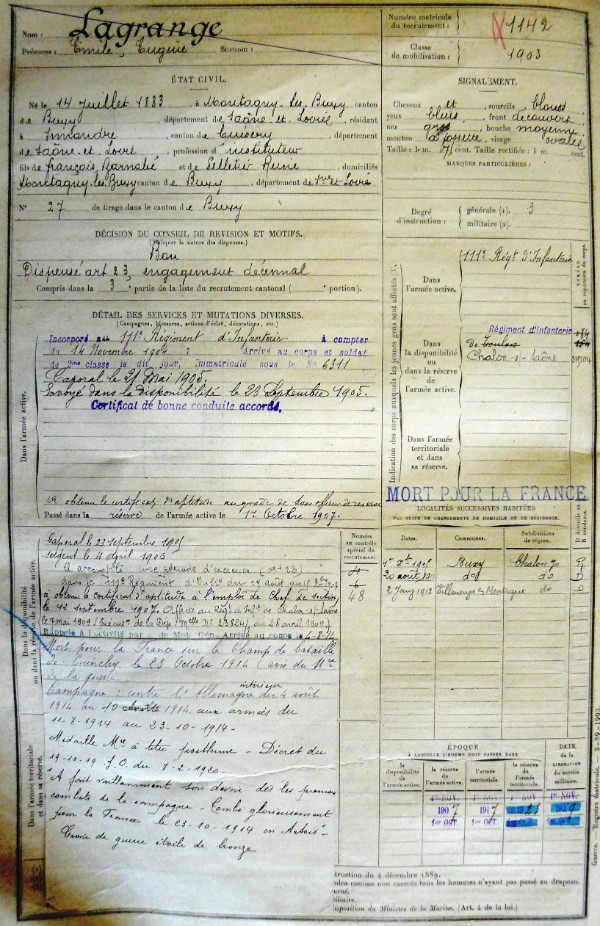 Nom : Lagrange
Prénoms : Emile, Eugène Surnom :
Numéro matricule du recrutement : 1142
Classe de mobilisation : 1903
ÉTAT CIVIL.
Né le 14 Juillet 1883 à Montagny-les-Buxy canton
de Buxy, département de Saône et Loire, résidant
à canton de Cuisery, département
de Saône et Loire, profession d'instituteur
fils de François, Barnabé et de Pelletier Reine, domiciliés
Montagny-les-Buxy canton de Buxy, département de
N° 27 de tirage dans le canton de Buxy
SIGNALEMENT.
Cheveux et sourcils blonds
yeux bleus, front découvert
nez gros, bouche moyenne
menton à fossette, visage ovale
Taille : 1 m. cent. Taille rectifiée : 1 m. cent.
MARQUES PARTICULIÈRES :
Degré d'instruction : générale (1). 3
militaire (2).
DÉCISION DU CONSEIL DE REVISION ET MOTIFS.
(Indiquer la nature des dispenses.)
Bon
Dispensé art 23, engagement décennal
Compris dans la 3e partie de la liste du recrutement cantonal ( portion).
DÉTAIL DES SERVICES ET MUTATIONS DIVERSES.
(Campagnes, blessures, actions d'éclat, décorations, etc.)
Incorporé au 111e Régiment d'Infanterie à compter
du 14 Novembre 1904 Arrivé au corps et soldat
de 2me classe le dit jour. Immatriculé sous le N° 6311
Caporal le
Envoyé dans la disponibilité le 23 Septembre 1905.
Certificat de bonne conduite accordé.
A obtenu le certificat d'aptitude au grade de sous officier de réserve
Passé dans la réserve de l'armée active le 1er Octobre 1907.
Dans l'armée active.
Indication des corps auxquels les jeunes gens sont affectés
Dans l'armée active.
111e Régt d'Infanterie
Dans la disponibilité ou dans la réserve de l'armée active.
Régiment d'Infanterie
de Toulon
Chalon s/ Saône
Dans l'armée territoriale et dans sa réserve.
MORT POUR LA FRANCE
LOCALITÉS SUCCESSIVES HABITÉES
PAR SUITE DE CHANGEMENTS DE DOMICILE OU DE RÉSIDENCE.
Numéro au contrôle spécial du recrutement.
48
Dates. Communes. Subdivisions de région.
Buxy Chalon D
20 août do do D
2 Janv 1912 Villeneuve en Montagne do D
Dans la disponibilité ou dans la réserve de l'armée active.
Caporal le 23 septembre 1905
sergent le 11 avril 1906
A accompli une période d'exercices
dans le 111e Régiment d'Infie du 19 août au
a obtenu le certificat d'aptitude à l'emploi de Chef de section
le 12 septembre 1907. Affecté au Régt d'Infie de Chalon s/ Saône
le 7 mai 1909
Rappelé à l'activité par de Mob Gén. Arrivé au corps le 4-8-14
Mort pour la France sur le Champ de bataille
de Cuinchy le 23 Octobre 1914 (avis du Mre
de la guerre
Campagne : contre l'Allemagne intérieur du 4 août
1914 au 10 1914 aux armées du
11-8-1914 au 23-10-1914.
Médaille Mre à titre posthume - Décret du
19-10-19 J.O. du 8-2-1920.
"A fait vaillamment son devoir dès les premiers
combats de la campagne. Tombé glorieusement
pour la France le 23-10-1914 en Artois"
Croix de guerre étoile de bronze
Dans l'armée territoriale et dans sa réserve.
ÉPOQUE
À LAQUELLE L'HOMME DOIT PASSER DANS
la disponibilité de l'armée active.
la réserve de l'armée active.
l'armée territoriale.
la réserve de l'armée territoriale.
DATE DE LA LIBÉRATION du service militaire.
1907 1917
1er OCT. 1er OCT.
truction du 4 décembre 1889.
comme non exercés tous les hommes n'ayant pas passé au drapeau.
disposition du Ministre de la Marine. (Art. 4 de la loi.)